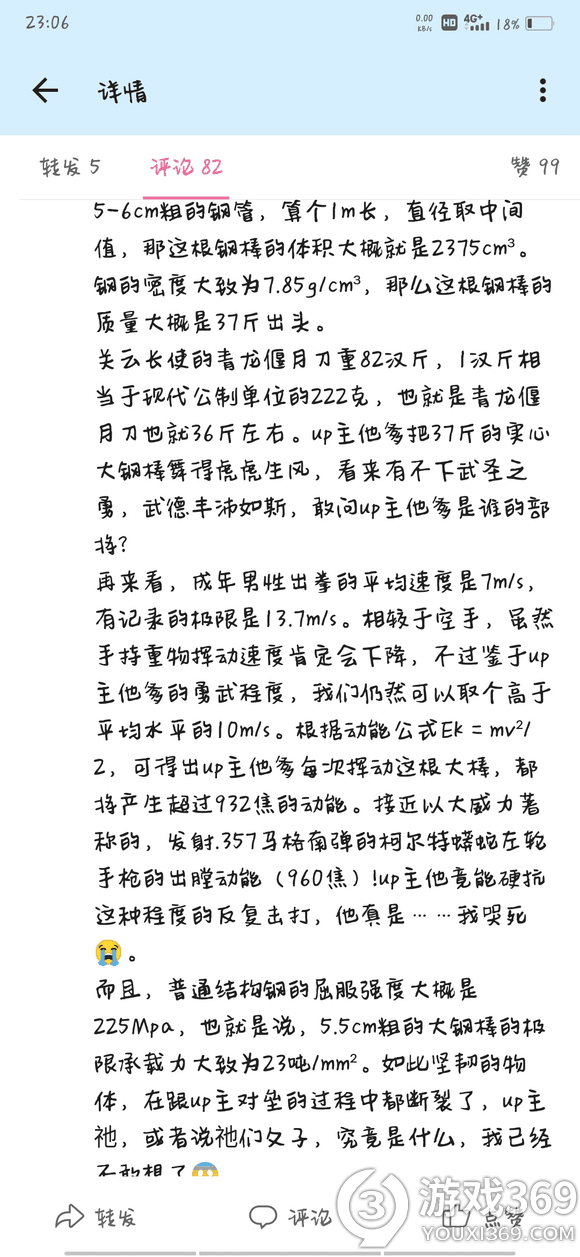 23:06
0.00
KB/s
HD
4G+
18%
详情
转发 5
评论 82
赞 99
5-6cm粗的钢管，算个1m长，直径取中间
值，那这根钢棒的体积大概就是2375cm³。
钢的密度大致为7.85g/cm³，那么这根钢棒的
质量大概是37斤出头。
关云长使的青龙偃月刀重82汉斤，1汉斤相
当于现代公制单位的222克，也就是青龙偃
月刀也就36斤左右。up主他爹把37斤的实心
大钢棒舞得虎虎生风，看来有不下武圣之
勇，武德丰沛如斯，敢问up主他爹是谁的部
将？
再来看，成年男性出拳的平均速度是7m/s，
有记录的极限是13.7m/s。相较于空手，虽然
手持重物挥动速度肯定会下降，不过鉴于up
主他爹的勇武程度，我们仍然可以取个高于
平均水平的10m/s。根据动能公式Ek = mv²/
2，可得出up主他爹每次挥动这根大棒，都
将产生超过932焦的动能。接近以大威力著
称的，发射.357马格南弹的柯尔特蟒蛇左轮
手枪的出膛动能（960焦）!up主他竟能硬抗
这种程度的反复击打，他真是……我哭死
😭。
而且，普通结构钢的屈服强度大概是
225Mpa，也就是说，5.5cm粗的大钢棒的极
限承载力大致为23吨/mm²。如此坚韧的物
体，在跟up主对垒的过程中都断裂了，up主
祂，或者说祂们父子，究竟是什么，我已经
不敢想了😱
转发
评论
点赞
游戏369
YOUXI369.COM